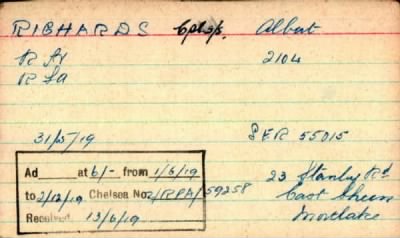 RICHARDS Cpl S/S. Albert
R Ar 2104
R FA
31/5/19 SER 55015
Ad____ at 6/- from 1/6/19
to 2/12/19 Chelsea No. 2/RPA/59258
Received. 13/6/19
23 Stanley Rd
East Sheen
Mortlake